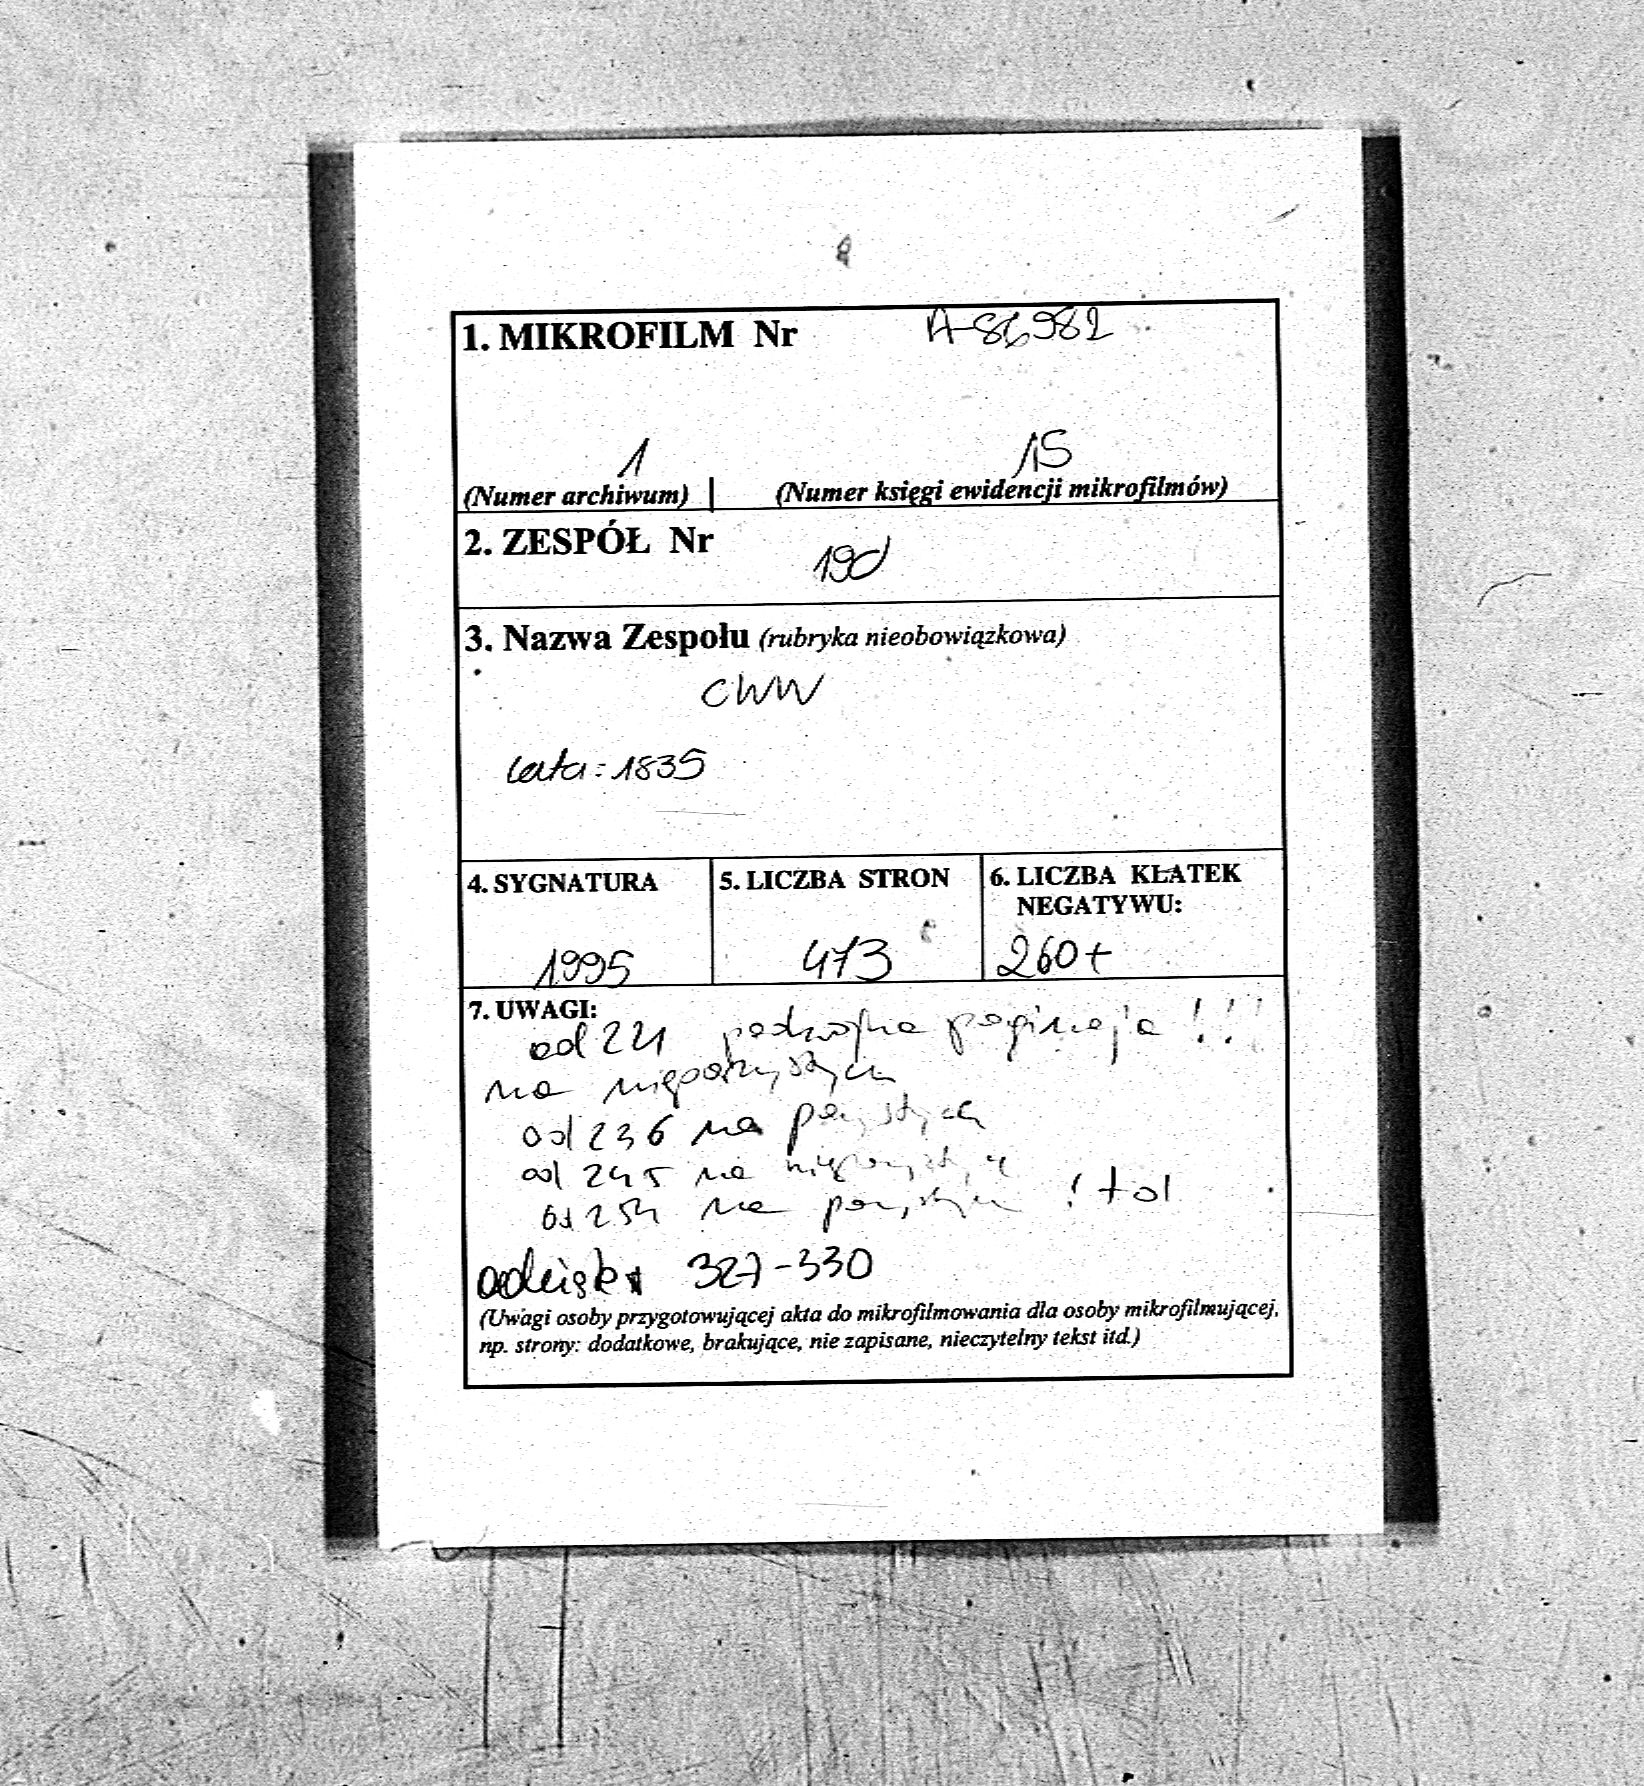 1. MIKROFILM Nr A-86982
1 15
(Numer archiwum) | (Numer księgi ewidencji mikrofilmów)
2. ZESPÓŁ Nr 190
3. Nazwa Zespołu (rubryka nieobowiązkowa)
CWW
lata: 1835
4. SYGNATURA 5. LICZBA STRON 6. LICZBA KLATEK
NEGATYWU:
1995 473 260+
7. UWAGI:
od 221 podwójna paginacja !!!
na nieparzystych
od 236 na parzystych
od 245 na nieparzystych
od 254 na parzystych !
327-330
(Uwagi osoby przygotowującej akta do mikrofilmowania dla osoby mikrofilmującej,
np. strony: dodatkowe, brakujące, nie zapisane, nieczytelny tekst itd.)